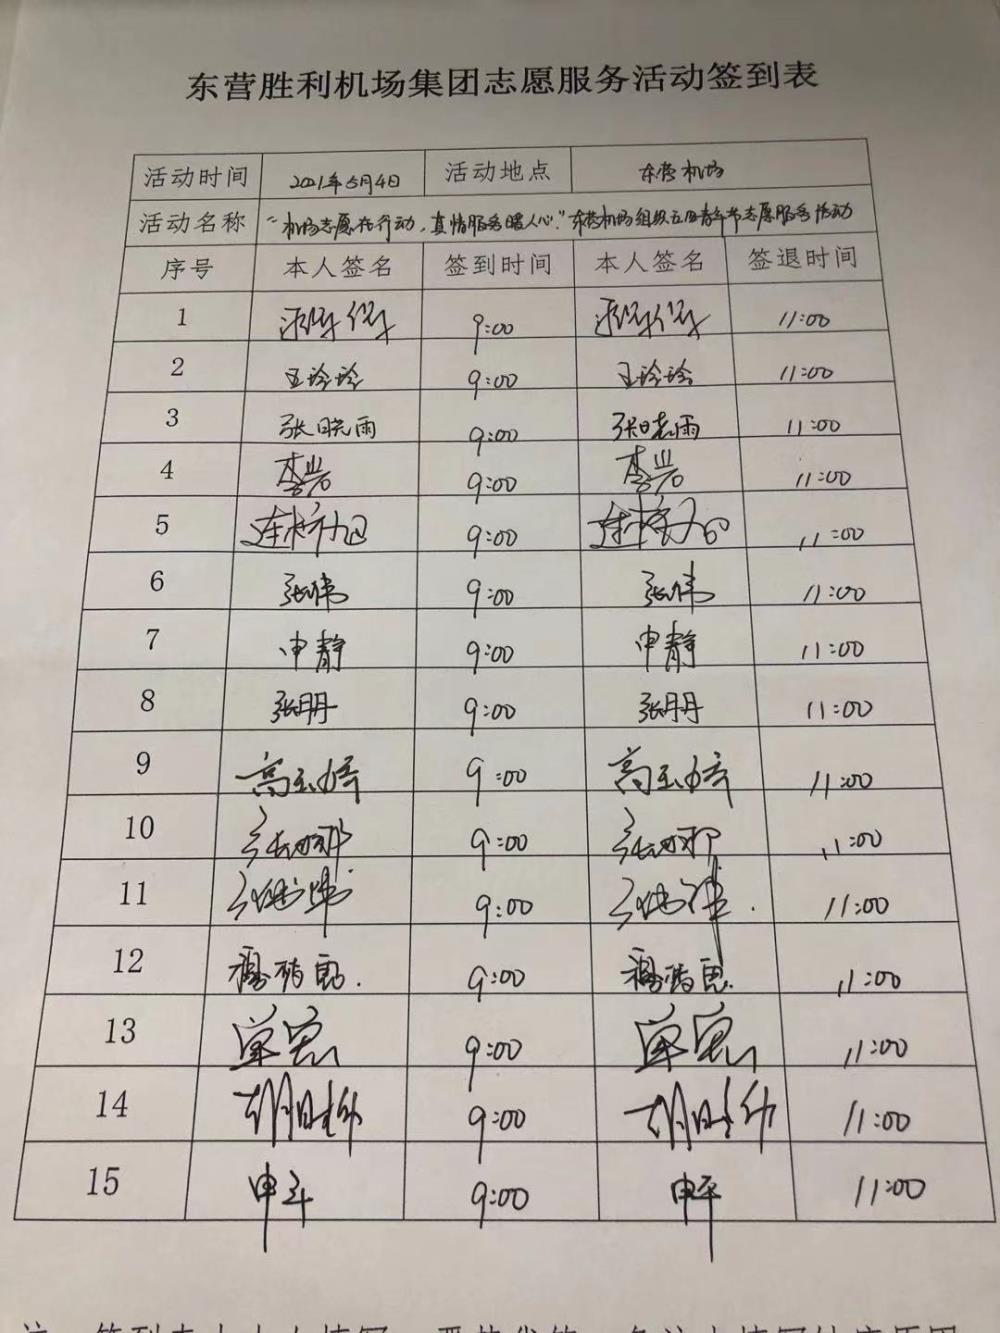 东营胜利机场集团志愿服务活动签到表
活动时间 2021年5月4日 活动地点 东营机场
活动名称 "机场志愿在行动,真情服务暖人心."东营机场组织五四青年节志愿服务活动
序号 本人签名 签到时间 本人签名 签退时间
1 9:00 11:00
2 王玲玲 9:00 王玲玲 11:00
3 张晓雨 9:00 张晓雨 11:00
4 李岩 9:00 李岩 11:00
5 9:00 11:00
6 张伟 9:00 张伟 11:00
7 申静 9:00 申静 11:00
8 张丹丹 9:00 张丹丹 11:00
9 高玉婷 9:00 高玉婷 11:00
10 张娜 9:00 张娜 11:00
11 9:00 11:00
12 9:00 11:00
13 9:00 11:00
14 9:00 11:00
15 申平 9:00 申平 11:00